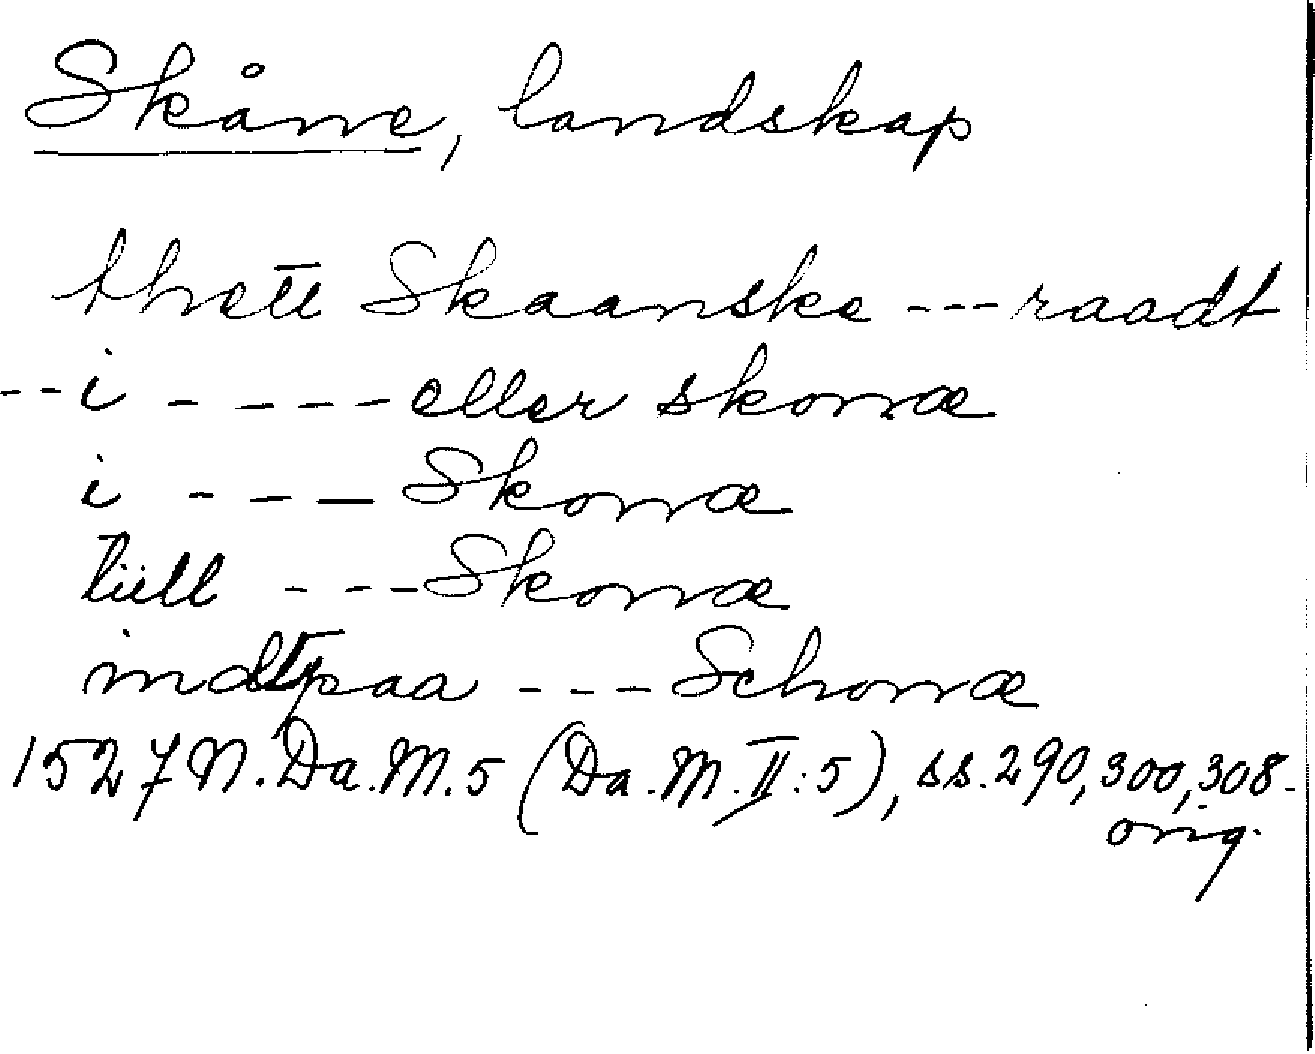 Skåne, landskap
thett Skaanske --- raadt
-- i - - - - - eller skonæ
i - - - Skonæ
tiill - - - Skonæ
indtpaa - - - Schonæ
1527 N. Da. M. 5 (Da. M. II: 5), ss. 290, 300, 308.
orig.